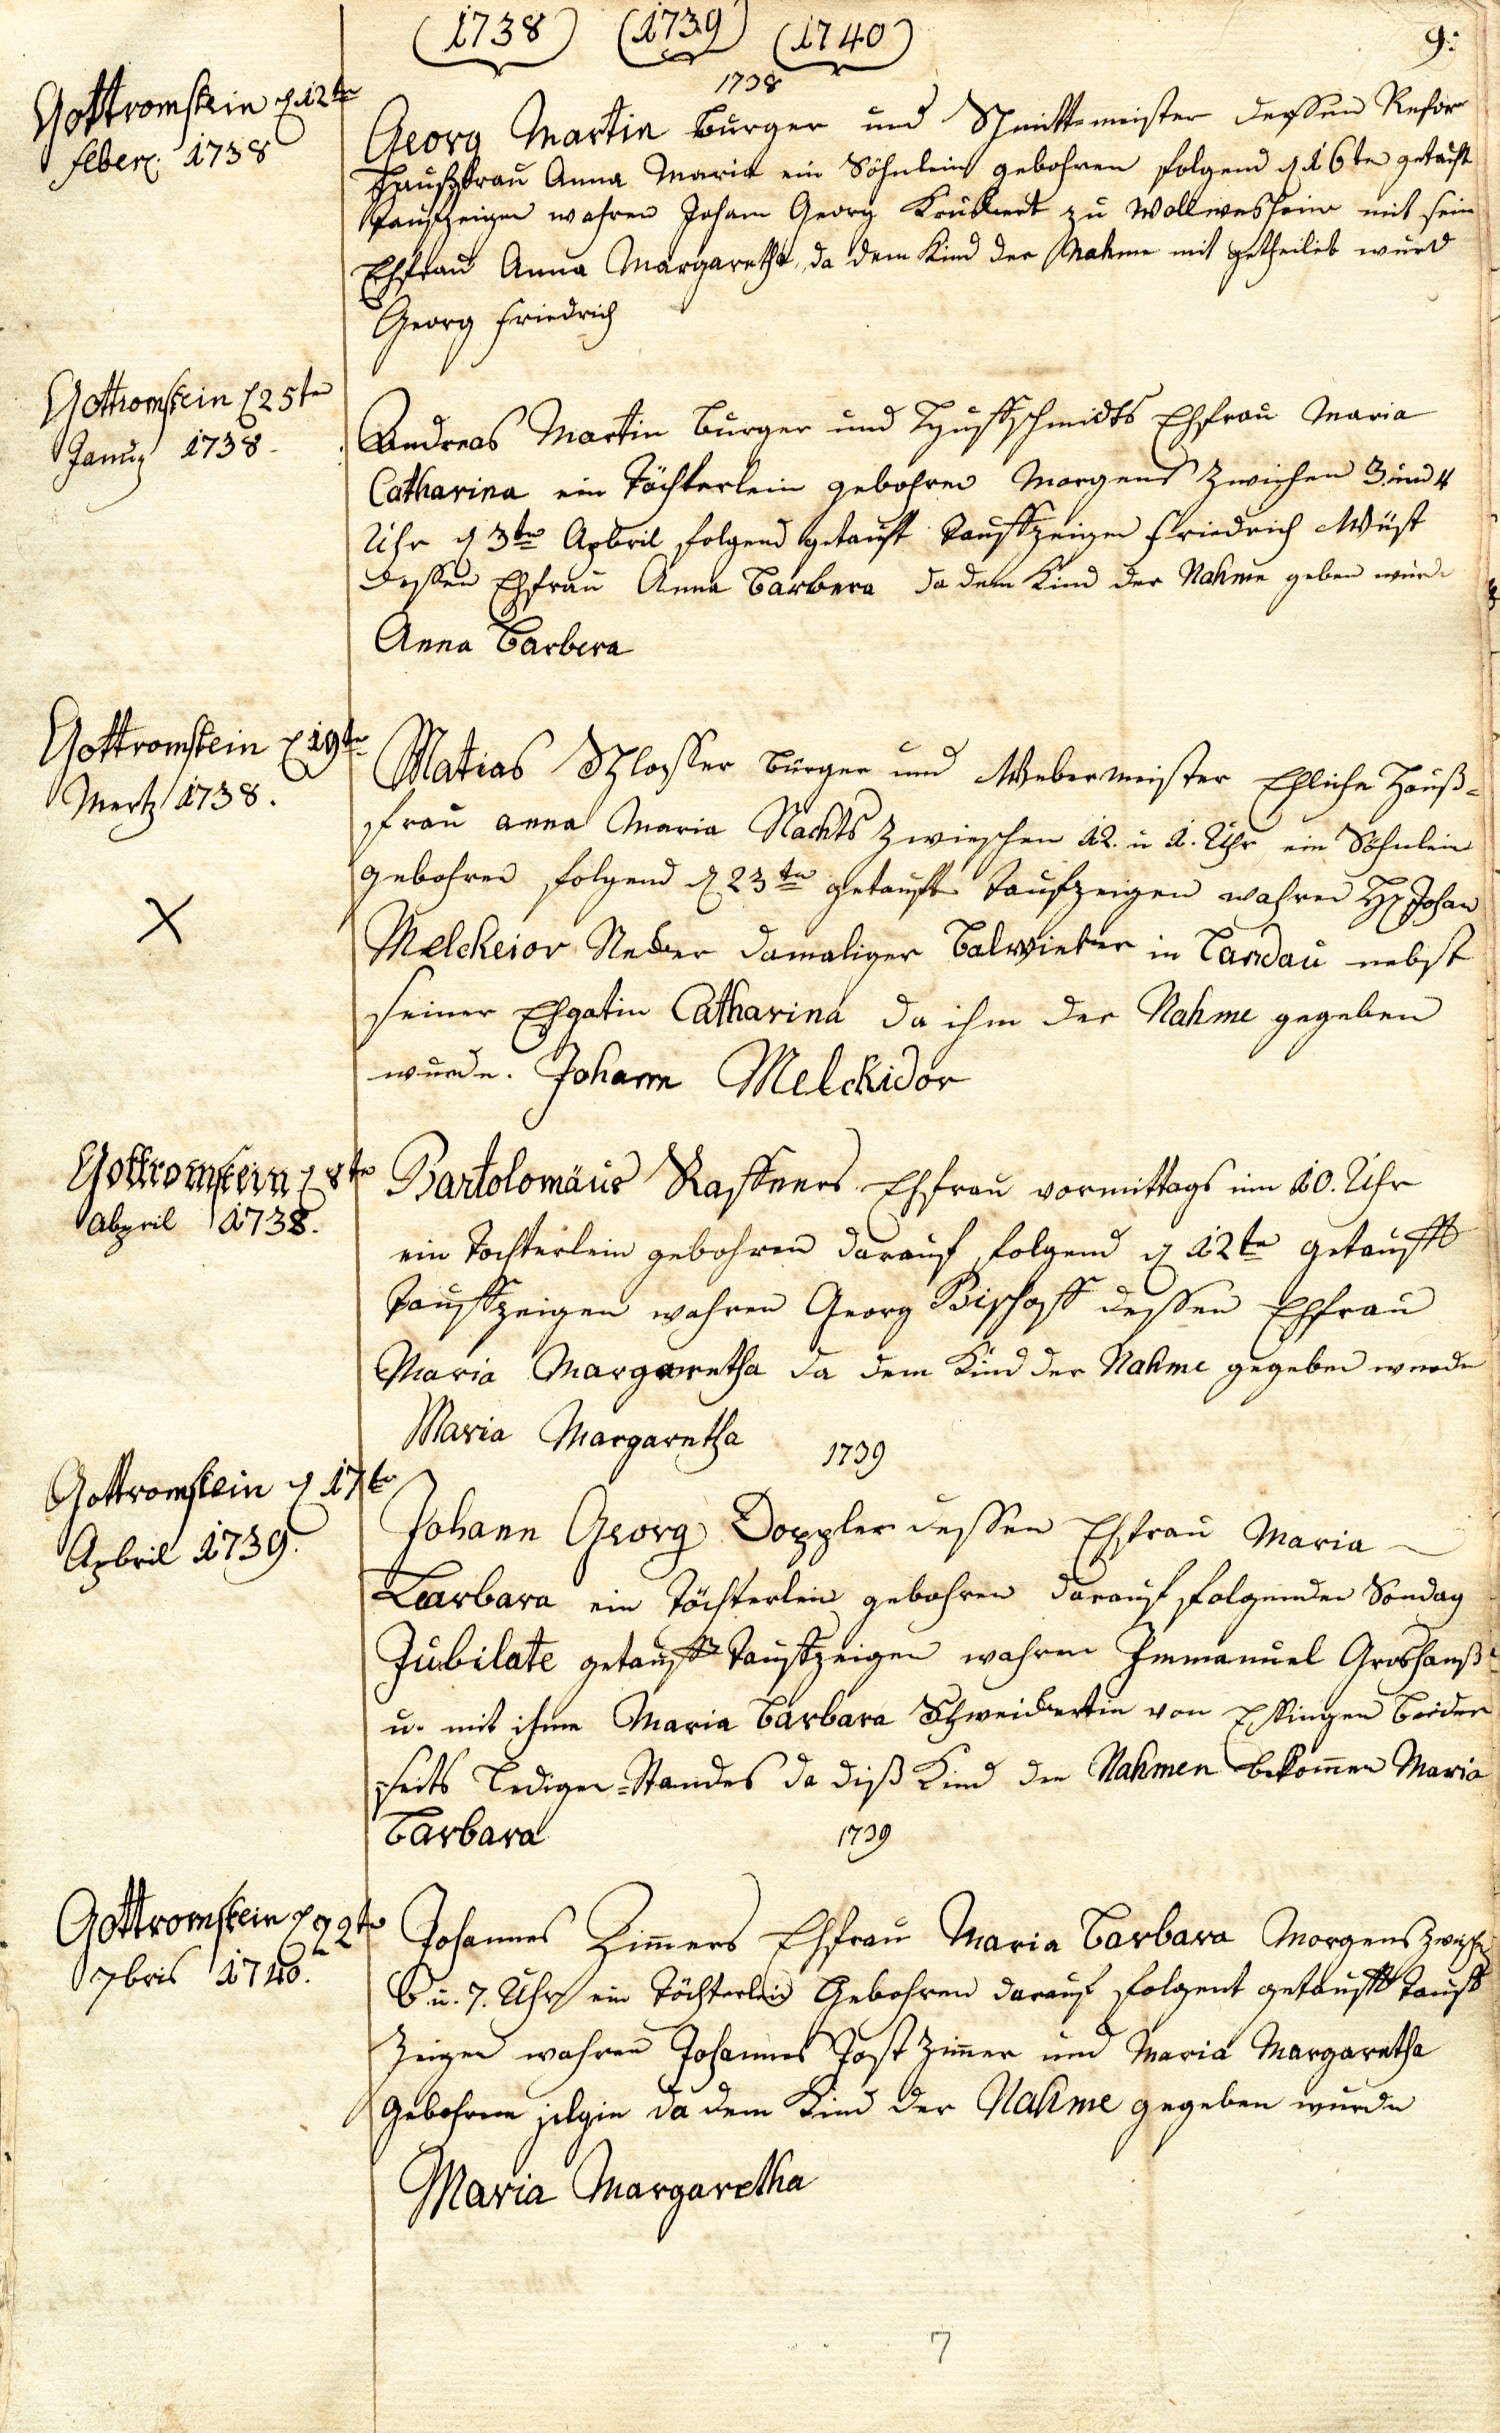 1738 1739 1740
9.
1738
Gottromstein d 12te
Feber. 1738
Georg Martin Burger und Schmittmeister dessen Refor
Haußfrau Anna Maria ein Söhnlein gebohren folgend d 16te getauft
Taufzeigen wahren Johann Georg zu Wollmesheim mit sein
Ehfrau Anna Margaretha, da dem Kind der Nahme mit getheilet wurd
Georg Friedrich
Gottromstein d 25te
Januz 1738.
Andreas Martin Burger und Hufschmidts Ehfrau Maria
Catharina ein Töchterlein gebohren Morgens zwichen 3 und 4
Uhr d 3te Apbril folgend getauft Taufzeigen Friedrich Wüst
dessen Ehfrau Anna Barbera da dem Kind der Nahme geben wurd
Anna Barbera
Gottromstein d 19te
Mertz 1738.
X
Matias Schlosser Bürger und Webermeister Ehliche Hauß=
frau anna Maria Nachts zwieschen 12. u 1. Uhr ein Söhnlein
gebohren folgend d 23te getauft Taufzeigen wahren H. Johan
Melckeior damaliger Balwierer in Landau nebst
seiner Ehgatin Catharina da ihm der Nahme gegeben
wurde. Johann Melckidor
Gottromstein d 8te
Abpril 1738.
Bartolomäus Raffners Ehfrau vormittags um 10. Uhr
ein Tochterlein gebohren darauf folgend d 12te getaufft
Tauffzeigen wahren Georg Bischoff dessen Ehfrau
Maria Margaretha da dem Kind der Nahme gegeben wurde
Maria Margaretha
1739
Gottromstein d 17te
Apbril 1739.
Johann Georg Doppler dessen Ehfrau Maria
Barbara ein Töchterlein gebohren darauf folgenden Sondag
Jubilate getauft Taufzeigen wahren Immanuel Groshanß
u. mit ihme Maria Barbara Schweickertin von Essingen beider
=seits Ledigen=Standes da diß Kind den Nahmen bekommen Maria
Barbara
1739
Gottromstein d 22te
7bris 1740.
Johannes Zimmers Ehfrau Maria Barbara Morgens zwischen
6 u. 7. Uhr ein Töchterlein Gebohren darauf folgent getaufft Tauf
Zeigen wahren Johannes Jost Zimmer und Maria Margaretha
Gebohrne da dem Kind der Nahme gegeben wurde
Maria Margaretha
7